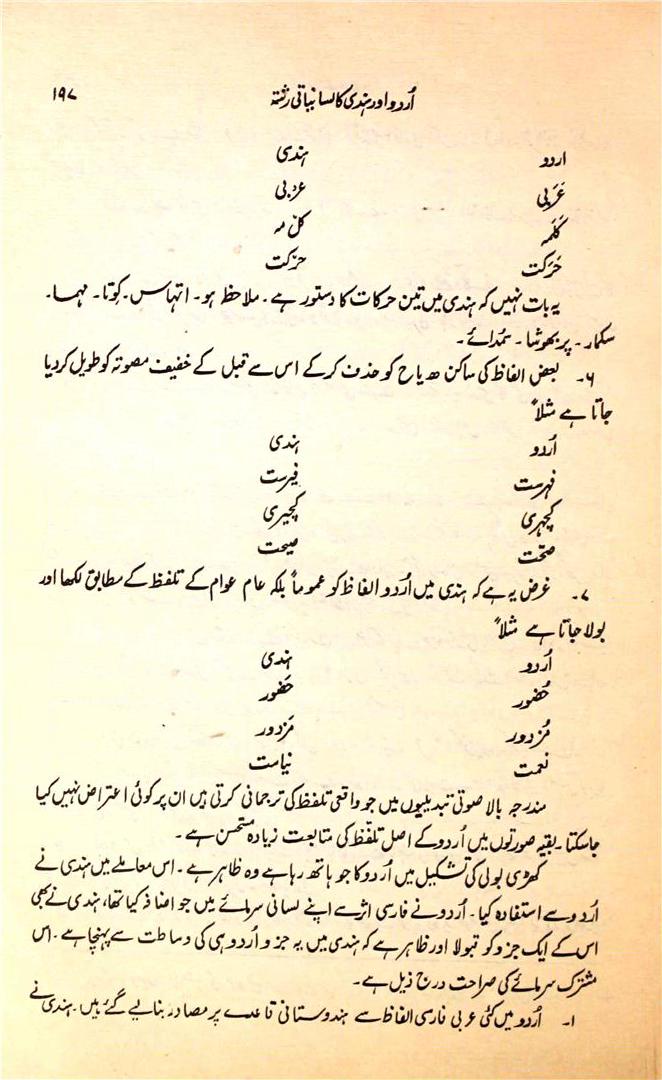 اُردو اور ہندی کا لسانیاتی رشتہ ۱۹۷
اردو ہندی
عَرَبی عرْبی
کَلَمہ کل مہ
حَرَکت حرْکت
یہ بات نہیں کہ ہندی میں تین حرکات کا دستور ہے۔ ملاحظہ ہو۔ اتہاس۔ کَوِتا۔ مہما۔
سکمار۔ پربھوشا۔ سُمدائے۔
۶۔ بعض الفاظ کی ساکن ھ یا ح کو حذف کرکے اس سے قبل کے خفیف مصوتہ کو طویل کردیا
جاتا ہے مثلاً
اُردو ہندی
فہرست فیرست
کچہری کچیری
صحّت صیحت
۷۔ غرض یہ ہے کہ ہندی میں اُردو الفاظ کو عموماً بلکہ عام عوام کے تلفظ کے مطابق لکھا اور
بولا جاتا ہے مثلاً
اُردو ہندی
حُضور حَضور
مُزدور مَزدور
نعمت نیامت
مندرجہ بالا صوتی تبدیلیوں میں جو واقعی تلفظ کی ترجمانی کرتی ہیں ان پر کوئی اعتراض نہیں کیا
جاسکتا۔ بقیہ صورتوں میں اُردو کے اصل تلفّظ کی متابعت زیادہ مستحسن ہے۔
کھڑی بولی کی تشکیل میں اُردو کا جو ہاتھ رہا ہے وہ ظاہر ہے۔ اس معاملے میں ہندی نے
اُردو سے استفادہ کیا۔ اُردو نے فارسی اثر سے اپنے لسانی سرمائے میں جو اضافہ کیا تھا، ہندی نے بھی
اس کے ایک جزو کو قبولا اور ظاہر ہے کہ ہندی میں یہ جزو اُردو ہی کی وساطت سے پہنچا ہے۔ اس
مشترک سرمائے کی صراحت درج ذیل ہے۔
۱۔ اُردو میں کئی عربی فارسی الفاظ سے ہندوستانی قاعدے پر مصادر بنالیے گئے ہیں۔ ہندی نے